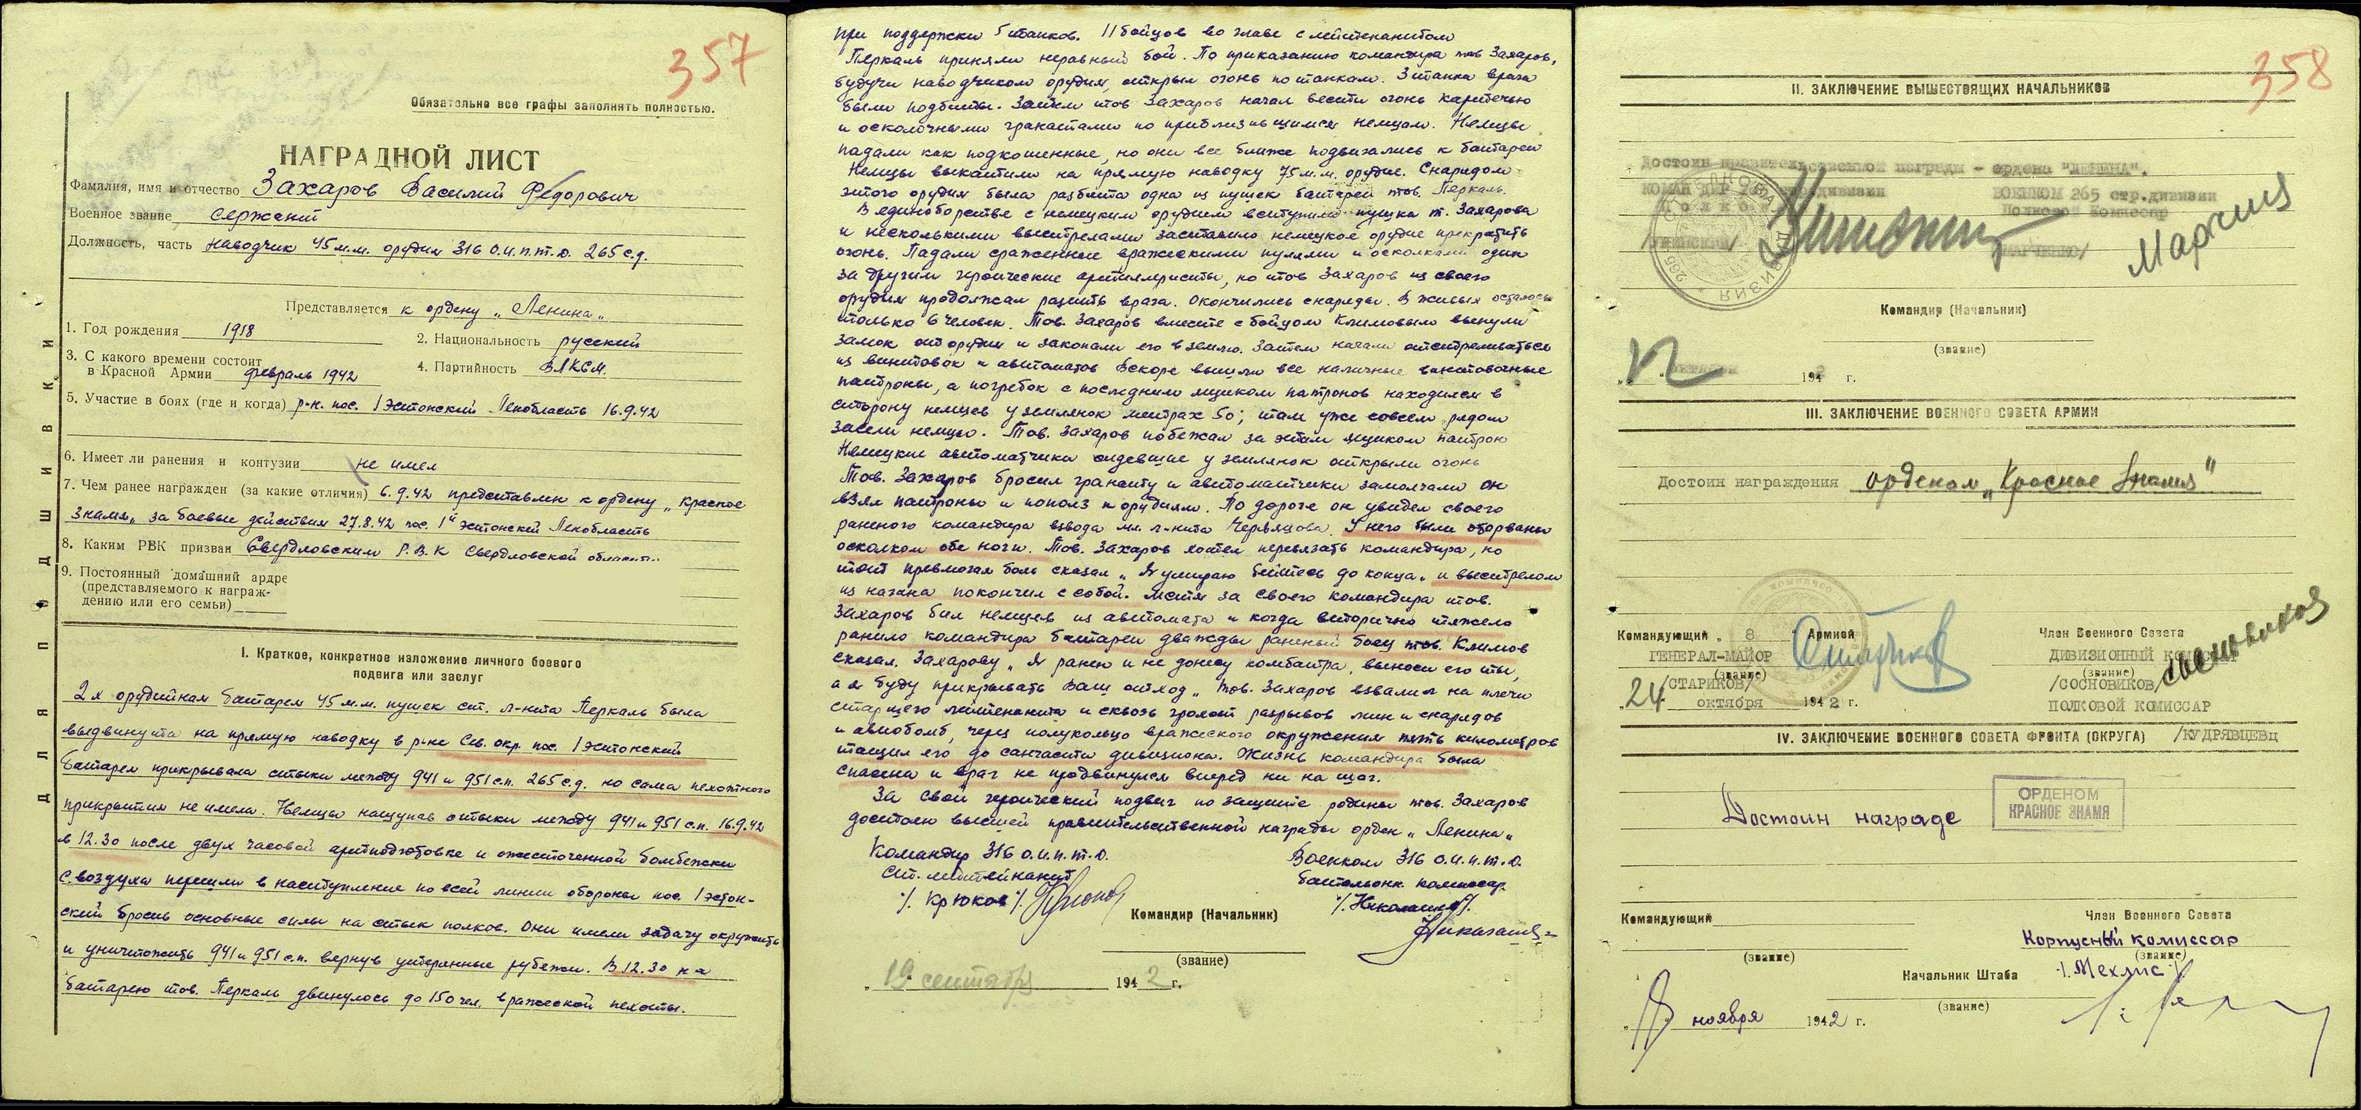 357
Обязательно все графы заполнять полностью.
НАГРАДНОЙ ЛИСТ
Фамилия, имя и отчество Захаров Василий Федорович
Военное звание сержант
Должность, часть наводчик 45 м.м. орудия 316 о.и.п.т.д. 265 с.д.
Представляется к ордену „Ленина„
1. Год рождения 1918
2. Национальность русский
3. С какого времени состоит
в Красной Армии февраль 1942
4. Партийность ВЛКСМ.
5. Участие в боях (где и когда) р-н. пос. 1 Эстонский Ленобласть 16.9.42
6. Имеет ли ранения и контузии не имел
7. Чем ранее награжден (за какие отличия) 6.9.42 представлен к ордену „Красное
Знамя„ за боевые действия 27.8.42 пос. 1й Эстонский Ленобласть
8. Каким РВК призван Свердловским Р.В.К Свердловской области
9. Постоянный домашний адре
(представляемого к награж-
дению или его семьи)
ДЛЯ ПОДШИВКИ
I. Краткое, конкретное изложение личного боевого
подвига или заслуг
2х орудийная батарея 45 м.м. пушек ст. л-нта Перкаль была
выдвинута на прямую наводку в р-не Сев. окр. пос. 1 Эстонский
Батарея прикрывала стыки между 941 и 951 с.п. 265 с.д. но сама пехотного
прикрытия не имела. Немцы нащупав стыки между 941 и 951 с.п. 16.9.42
в 12.30 после двух часовой артподготовке и ожесточенной бомбежки
с воздуха перешли в наступление по всей линии обороны пос. 1 Эстон-
ский бросив основные силы на стык полков. Они имели задачу окружить
и уничтожить 941 и 951 с.п. вернув утерянные рубежи. В 12.30 на
батарею тов. Перкаль двинулось до 150 чел. вражеской пехоты.
при поддержки 5 танков. 11 бойцов во главе с лейтенантом
Перкаль приняли неравный бой. По приказанию командира тов Захаров,
будучи наводчиком орудия, открыл огонь по танкам. 3 танка врага
были подбиты. Затем тов Захаров начал вести огонь картечью
и осколочными гранатами по приблизившимся немцам. Немцы
падали как подкошенные, но они все ближе подвигались к батареи
Немцы выкатили на прямую наводку 75 м.м. орудие. Снарядом
этого орудия была разбита одна из пушек батареи тов. Перкаль.
В единоборстве с немецким орудием вступила пушка т. Захарова
и несколькими выстрелами заставила немецкое орудие прекратить
огонь. Падали сраженные вражескими пулями и осколками один
за другим героические артиллеристы, но тов Захаров из своего
орудия продолжал разить врага. Окончились снаряды. В живых осталось
только 6 человек. Тов. Захаров вместе с бойцом Климовым вынули
замок от орудия и закопали его в землю. Затем начали отстреливаться
из винтовок и автоматов Вскоре вышли все наличные винтовочные
патроны, а погребок с последним ящиком патронов находился в
сторону немцев у землянок метрах 50; там уже совсем рядом
засели немцы. Тов. Захаров побежал за этим ящиком патрон
Немецкие автоматчики сидевшие у землянок открыли огонь
Тов. Захаров бросил гранату и автоматчики замолчали он
взял патроны и пополз к орудиям. По дороге он увидел своего
раненого командира взвода мл. л-нта Червяцова. У него были оторваны
осколком обе ноги. Тов. Захаров хотел перевязать командира, но
тот превмогая боль сказал „Я умираю бейтесь до конца„ и выстрелом
из нагана покончил с собой. Мстя за своего командира тов.
Захаров бил немцев из автомата и когда вторично тяжело
ранило командира батареи дважды раненый боец тов. Климов
сказал. Захарову „Я ранен и не донесу комбатра, выноси его ты,
а я буду прикрывать Ваш отход„ Тов. Захаров взвалил на плечи
старшего лейтенанта и сквозь грохот разрывов мин и снарядов
и авиобомб, через полукольцо вражеского окружения пять километров
тащил его до санчасти дивизиона. Жизнь командира была
спасена и враг не продвинулся вперед ни на шаг.
За свой героический подвиг по защите родины тов. Захаров
достоин высшей правительственной награды орден „Ленина„
Командир 316 о.и.п.т.д.
ст. лейтейнант
/. Крюков /.
Военком 316 о.и.п.т.д.
батальонн. комиссар.
Командир (Начальник)
(звание)
„19 сентября 1942 г.
358
II. ЗАКЛЮЧЕНИЕ ВЫШЕСТОЯЩИХ НАЧАЛЬНИКОВ
Достоин правительственной награды - ордена "ЛЕНИНА".
КОМАНДИР 265 стр.дивизии
ВОЕНКОМ 265 стр.дивизии
Полковой Комиссар
/МАРЧЕНКО/
Командир (Начальник)
(звание)
октября 1942 г.
III. ЗАКЛЮЧЕНИЕ ВОЕННОГО СОВЕТА АРМИИ
Достоин награждения орденом „Красное Знамя"
Командующий 8 Армией
ГЕНЕРАЛ-МАЙОР
(звание)
/СТАРИКОВ/
Член Военного Совета
ДИВИЗИОННЫЙ КОМИССАР
(звание)
/СОСНОВИКОВ/
„24 октября 1942 г.
ПОЛКОВОЙ КОМИССАР
/КУДРЯВЦЕВ/
IV. ЗАКЛЮЧЕНИЕ ВОЕННОГО СОВЕТА ФРОНТА (ОКРУГА)
Достоин награде
ОРДЕНОМ
КРАСНОЕ ЗНАМЯ
Командующий
(звание)
Член Военного Совета
Корпусный комиссар
(звание)
/. Мехлис /.
Начальник Штаба
(звание)
ноября 1942 г.